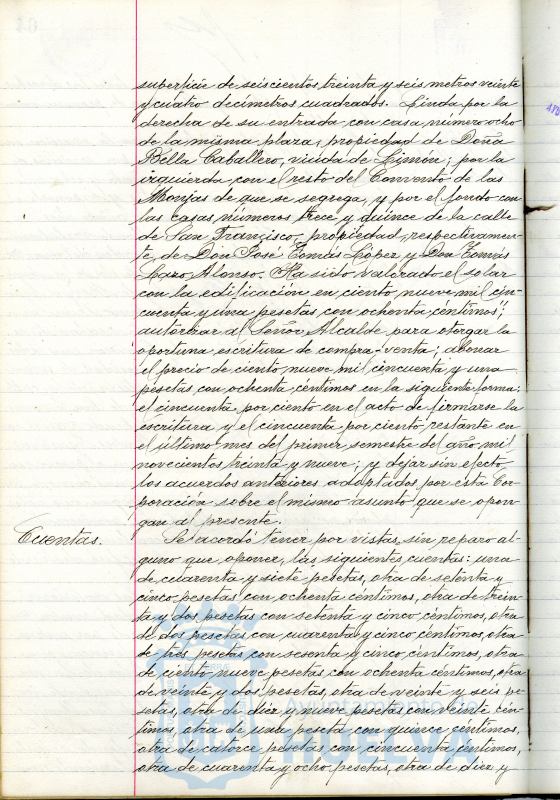 superficie de seiscientos treinta y seis metros veinte
y cuatro decímetros cuadrados. Linda por la
derecha de su entrada con casa número ocho
de la misma plaza, propiedad de Doña
Bella Caballero, viuda de Limón; por la
izquierda con el resto del Convento de las
Monjas de que se segrega, y por el fondo con
las casas números trece y quince de la calle
de San Francisco, propiedad, respectivamen-
te, de Don José Tomás López y Don Tomás
Lazo Alonso. Ha sido valorado el solar
con la edificación en ciento nueve mil cin-
cuenta y una pesetas con ochenta céntimos;
autorizar al Señor Alcalde para otorgar la
oportuna escritura de compra-venta; abonar
el precio de ciento nueve mil cincuenta y una
pesetas con ochenta céntimos en la siguiente forma:
el cincuenta por ciento en el acto de firmarse la
escritura y el cincuenta por ciento restante en
el último mes del primer semestre del año mil
novecientos treinta y nueve; y dejar sin efecto
los acuerdos anteriores adoptados por esta Cor-
poración sobre el mismo asunto que se opon-
gan al presente.
Cuentas. Se acordó tener por vistas, sin reparo al-
guno que oponer, las siguientes cuentas: una
de cuarenta y siete pesetas, otra de setenta y
cinco pesetas con ochenta céntimos, otra de trein-
ta y dos pesetas con setenta y cinco céntimos, otra
de dos pesetas con cuarenta y cinco céntimos, otra
de tres pesetas con sesenta y cinco céntimos, otra
de ciento nueve pesetas con ochenta céntimos, otra
de veinte y dos pesetas, otra de veinte y seis pe-
setas, otra de diez y nueve pesetas con veinte cén-
timos, otra de una peseta con quince céntimos,
otra de catorce pesetas con cincuenta céntimos,
otra de cuarenta y ocho pesetas, otra de diez y
Ayuntamiento de
HUELVA